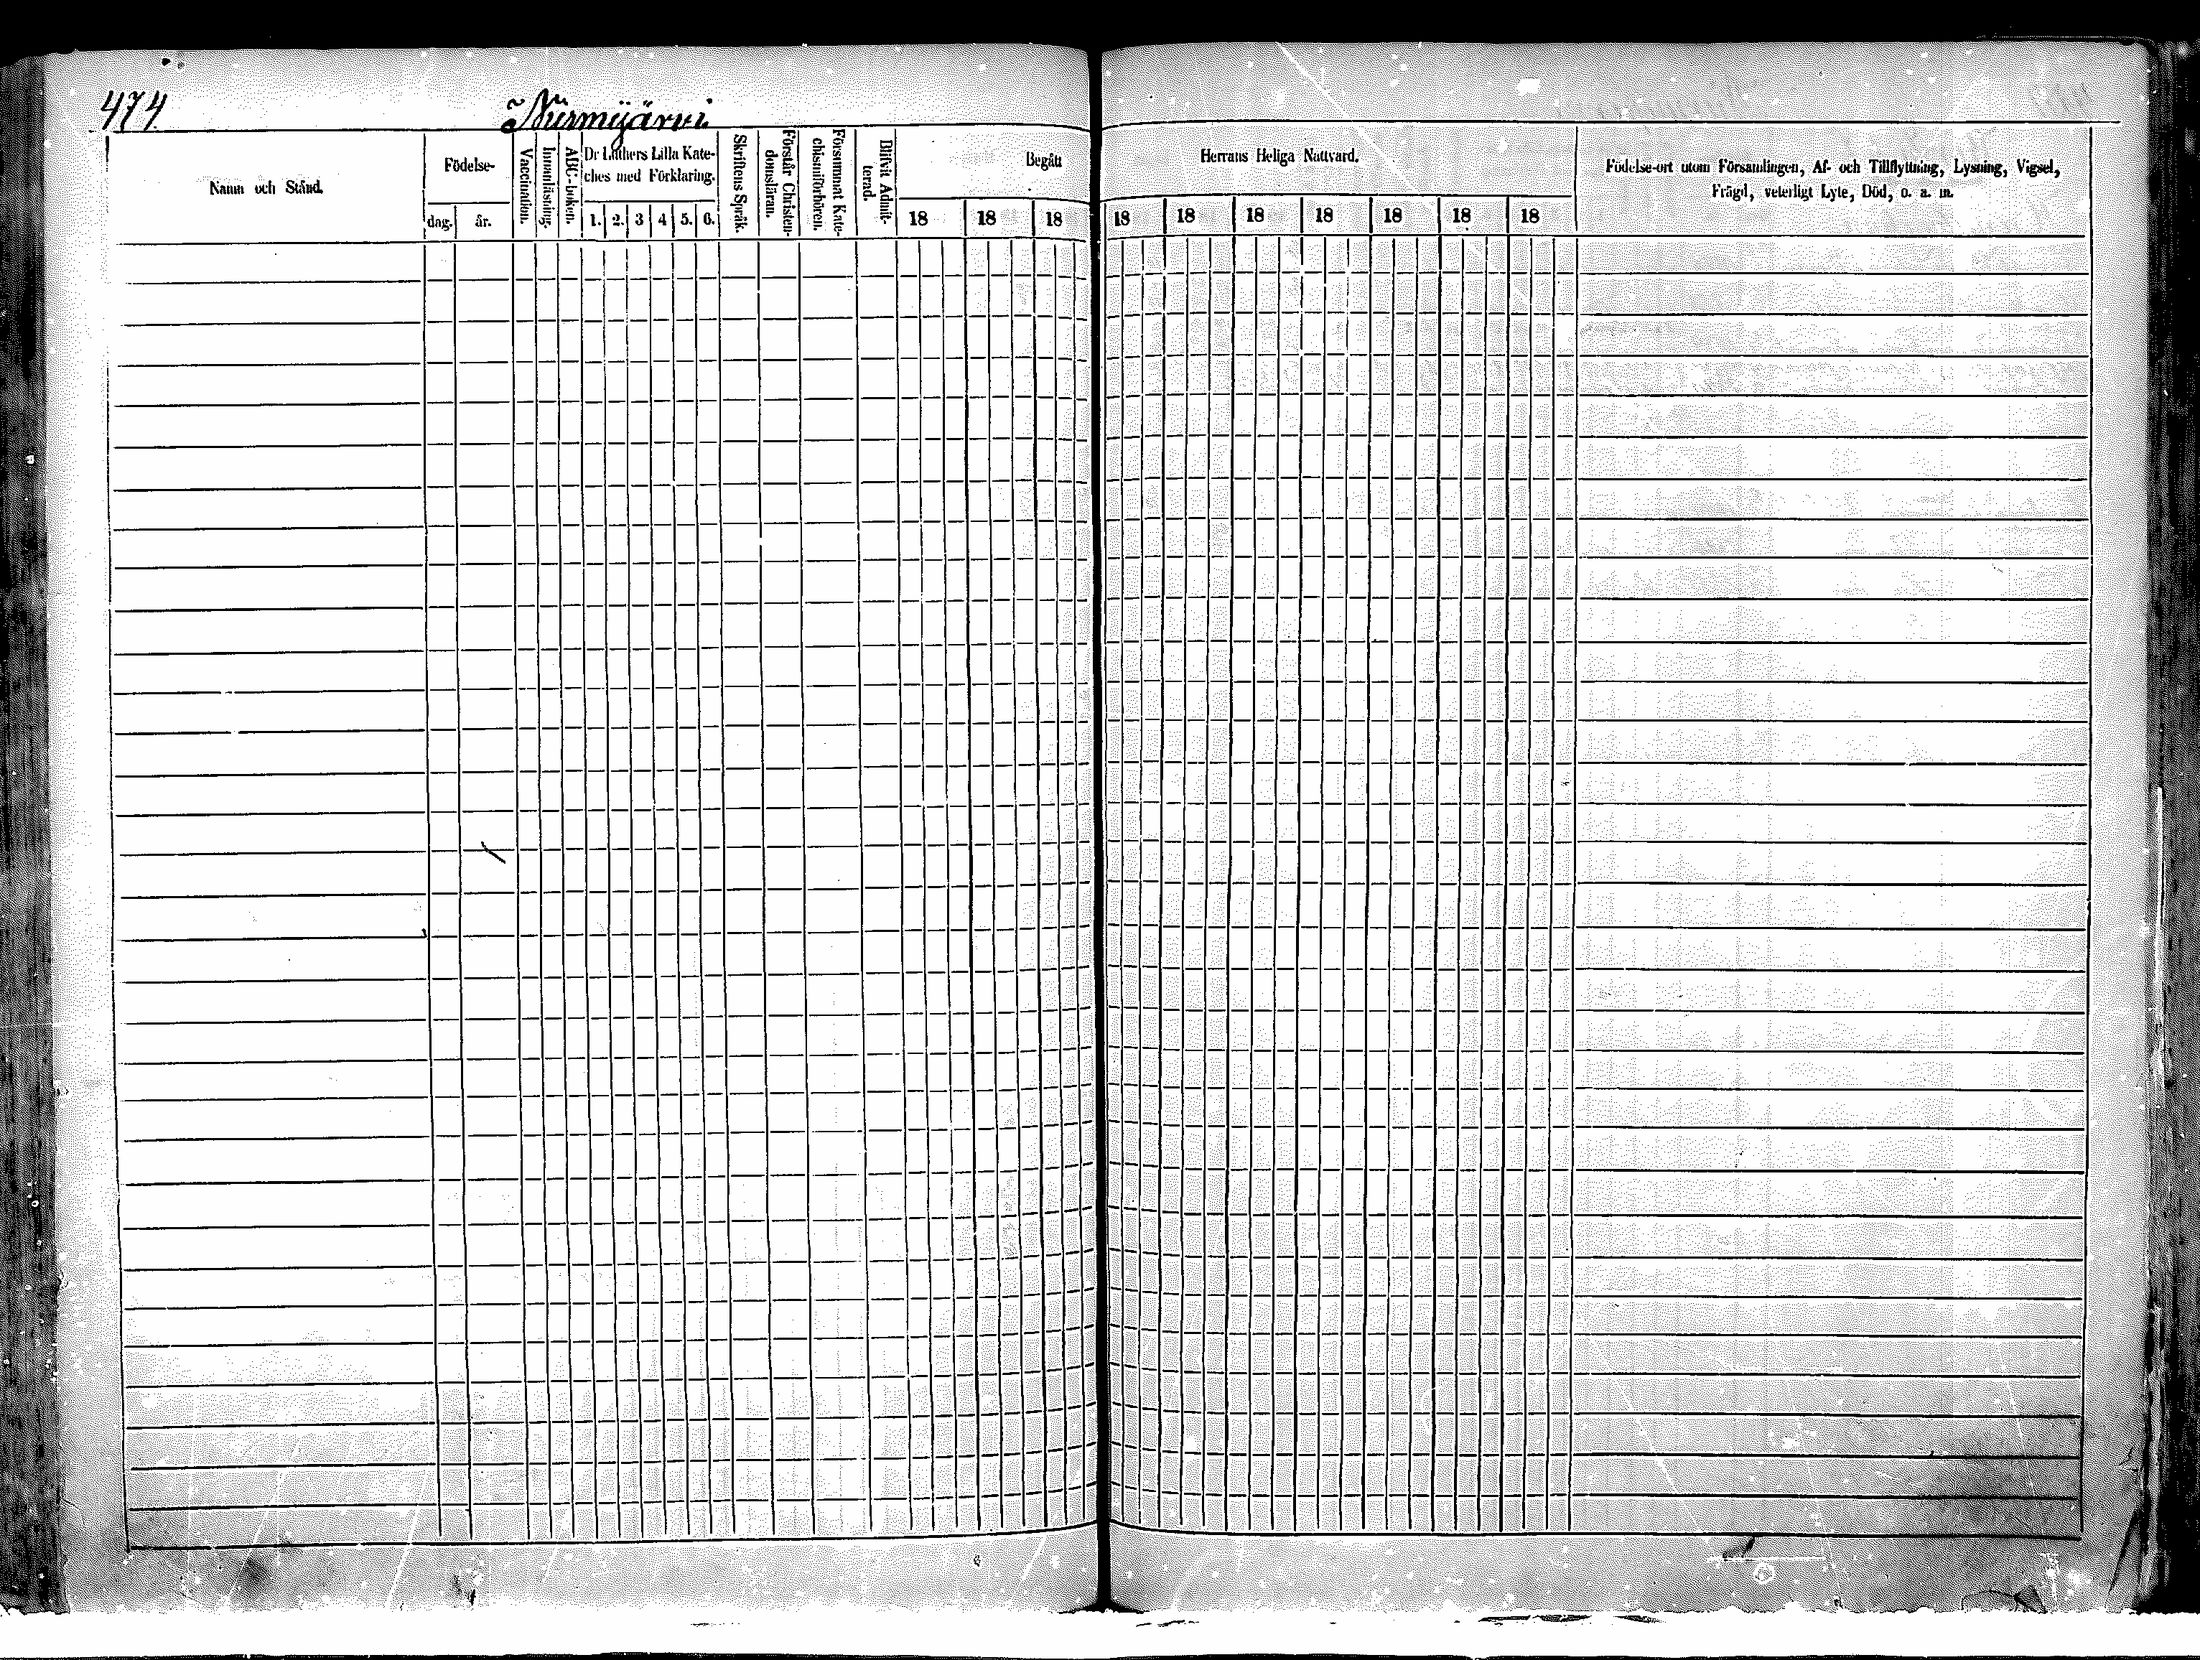 474.
Nurmijärvi
Namn och Stånd.
Födelse-
dag.
år.
Vaccination.
Innanläsning.
ABC-boken.
Dr Luthers Lilla Kate-
ches med Förklaring.
1. 2. 3 4 5. 6.
Skriftens Språk.
Förstår Christen-
domsläran.
Försummat Kate-
chismiförhören.
Blifvit Admit-
terad.
Begått
18 18 18
Herrans Heliga Nattvard.
18 18 18 18 18 18 18
Födelse-ort utom Församlingen, Af- och Tillflyttning, Lysning, Vigsel,
Frägd, veterligt Lyte, Död, o. a. m.